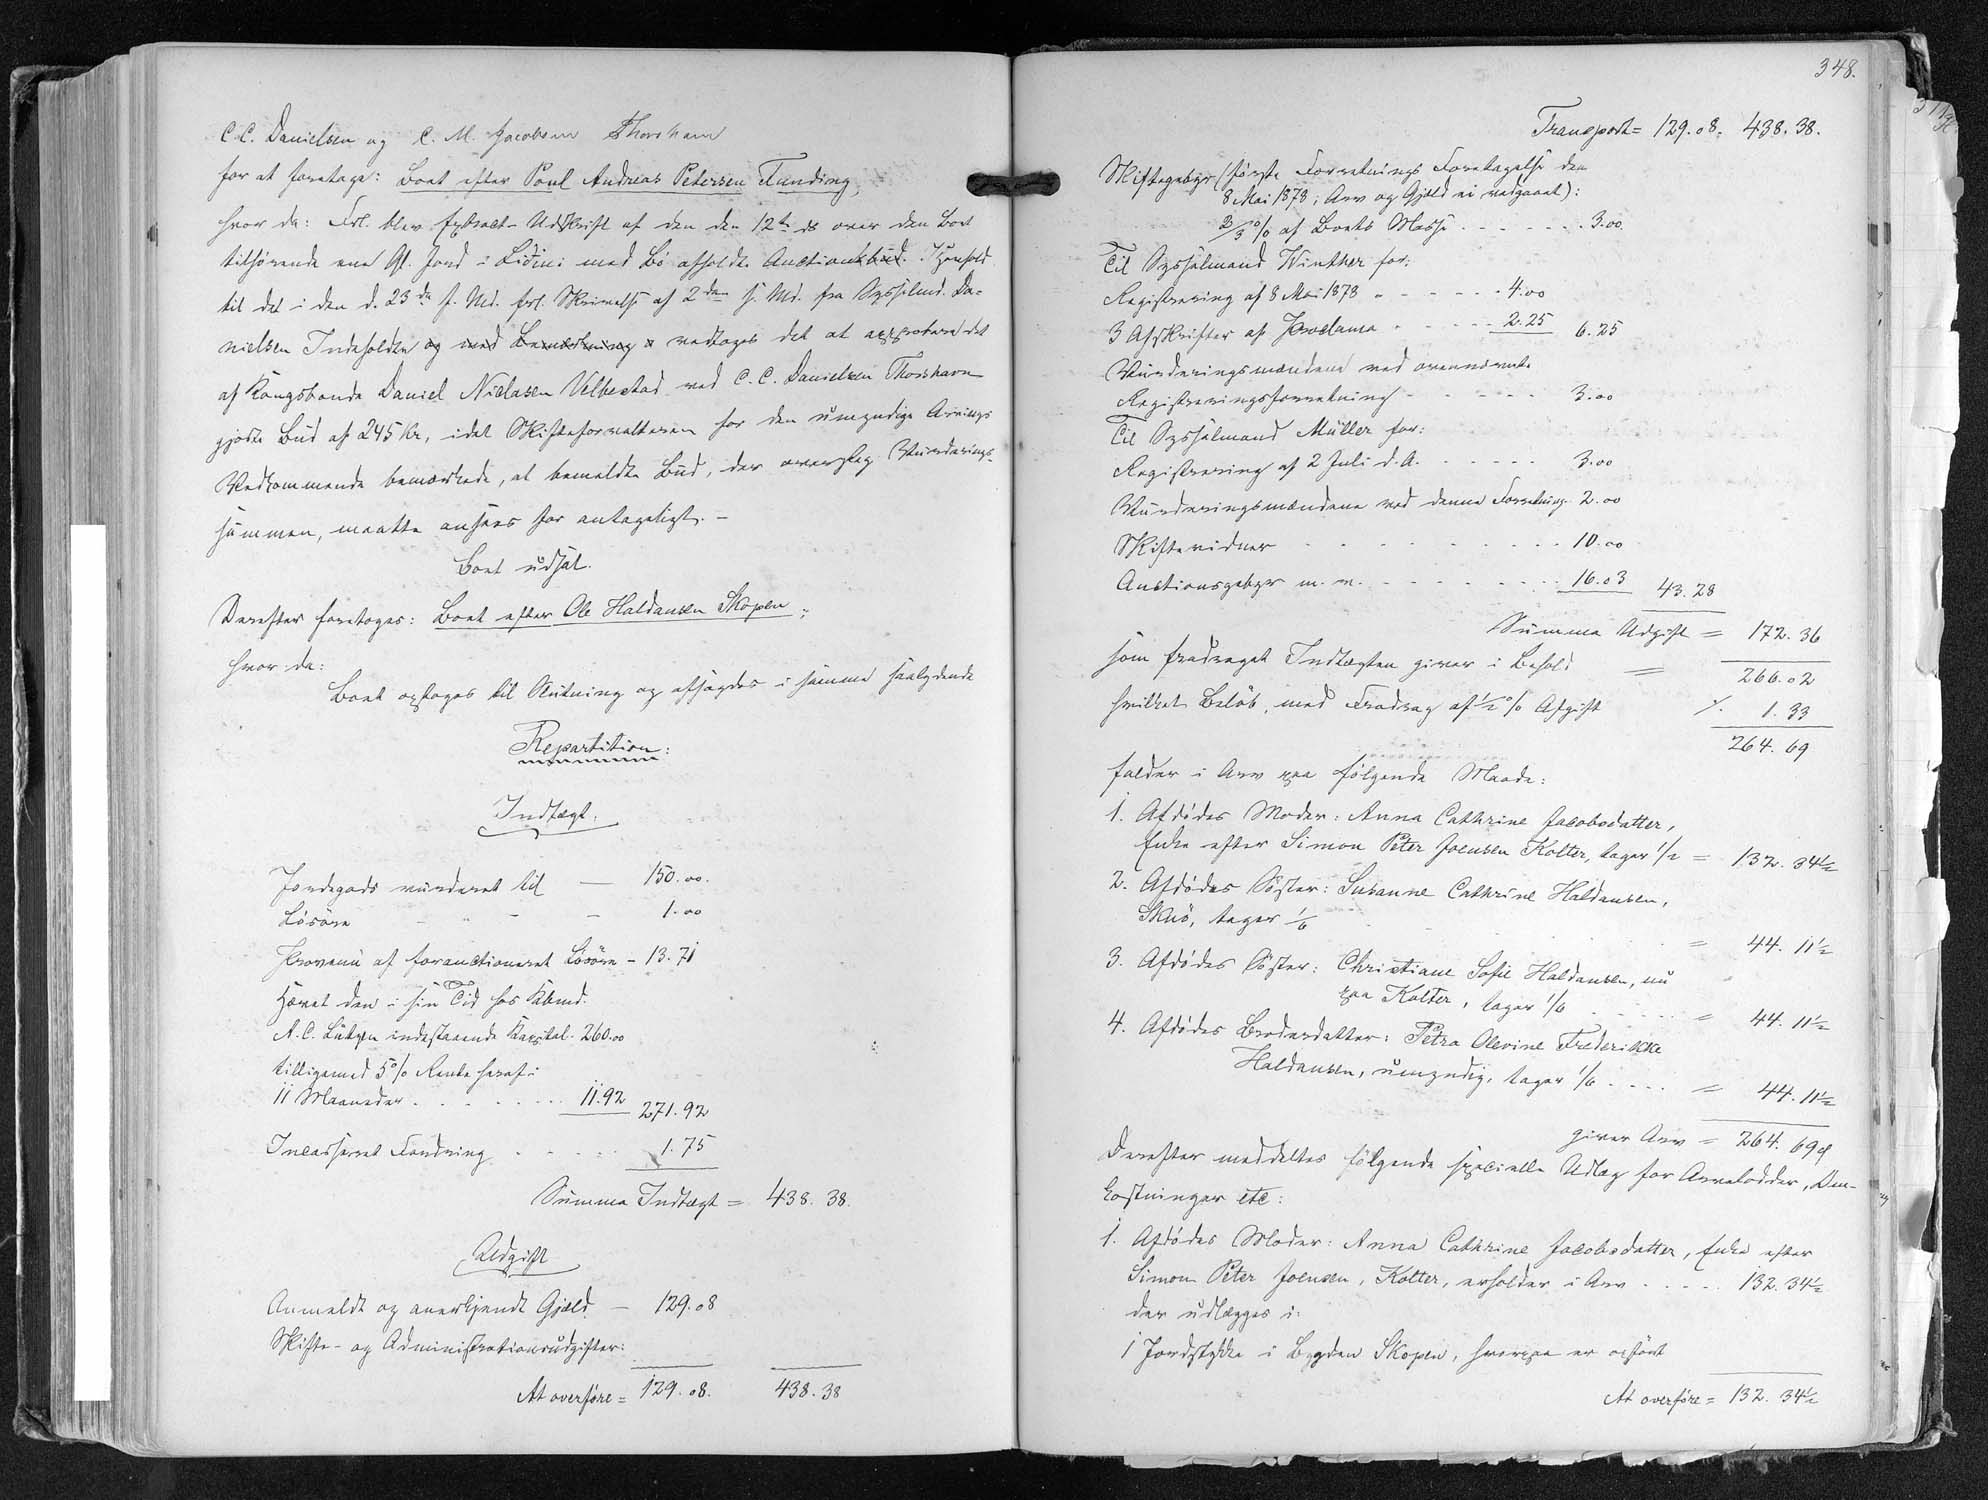 C.C. Danielsen og C. M. Jacobsen Thorshavn
for at foretage: Boet efter Poul Andreas Petersen Funding,
hvor da: Frl. blev Extract-Udskrift af den den 12te ds over den Boet
tilhørende ene Gl. Jord i Lidini med Bö afholdte Auctionsbud. Henhold
til det i den d. 23de f. Md. frl. Skrivelse af 2den f. Md. fra Sysselmd. Da-
nielsen Indeholdte og med Bemærkning vedtoges det at approbere det
af Kongsbonde Daniel Niclasen Velbestad ved C.C. Danielsen Thorshavn
gjorte Bud af 245 Kr, idet Skifteforvalteren for den umyndige Arvings
Vedkommende bemærkede, at bemeldte Bud, der oversteg Vurderings-
summen, maatte ansees for antageligt. -
Boet udsat.
Derefter foretoges: Boet efter Ole Haldansen Skopen;
hvor da:
Boet optoges til Slutning og afsagdes i samme saalydende
Repartition:
Indtægt.
Jordegods vurderet til — 150.00.
Løsøre - - - 1.00
Provenu af forauctioneret Løsøre - 13.71
Hævet den i sin Tid hos Kbmd.
A.C. Lützen indestaaende Kapital. 260.00
tilligemed 5% Rente heraf i
11 Maaneder . . . . . . 11.92 271.92
Incasseret Fordring . . . . . 1.75
Summa Indtægt = 438.38.
Udgift
Anmeldt og anerkjendt Gjæld. — 129.08
Skifte- og Administrationsudgifter:
At overføre = 129.08. 438.38
348.
Transport = 129.08. 438.38.
Skiftegebyr (første Forretnings Foretagelse den
8 Mai 1878; Arv og Gjæld ei vedgaaet):
2/3 % af Boets Masse . . . . . . . 3.00.
Til Sysselmand Winther for:
Registrering af 8 Mai 1878 . - - - - - 4.00
3 Afskrifter af Proclama . - - - - 2.25 6.25
Vurderingsmændene ved ovennævnte
Registreringsforretning - - - - - - 3.00
Til Sysselmand Müller for:
Registrering af 2 Juli d.A. - - - - - 3.00
Vurderingsmændene ved denne Forretning. 2.00
Skiftevidner - - - - - - - - - 10.00
Auctionsgebyr m. m. - - - - - - - 16.03 43.28
Summa Udgift = 172.36
som fradraget Indtægten giver i Behold = 266.02
hvilket Beløb, med Fradrag af 1/2 % Afgift ./. 1.33
264.69
falder i Arv paa følgende Maade:
1. Afdødes Moder: Anna Cathrine Jacobsdatter,
Enke efter Simon Peter Joensen Kolter, tager 1/2 = 132.34½
2. Afdødes Søster: Susanne Cathrine Haldansen,
Skuö, tager 1/6 = 44.11½
3. Afdødes Søster: Christiane Sofie Haldansen, nu
paa Kolter, tager 1/6 . . . . . = 44.11½
4. Afdødes Broderdatter: Petra Olevine Frederikke
Haldansen, umyndig, tager 1/6 . . . . = 44.11½
giver Arv = 264.69
Derefter meddeltes følgende specielle Udlæg for Arvelodder, Om-
kostninger etc:
1. Afdødes Moder: Anna Cathrine Jacobsdatter, Enke efter
Simon Peter Joensen, Kolter, erholder i Arv . . . . 132.34½
der udlægges i:
1 Jordstykke i Bygden Skopen, hvorpaa er opført
At overføre = 132.34½